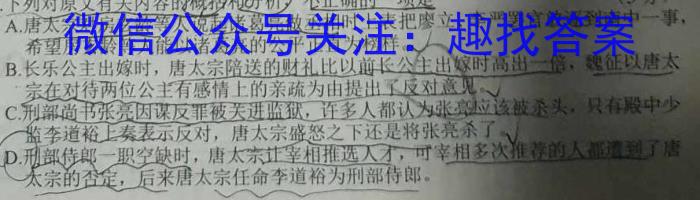 下列对原文有关内容的概括和分析，不正确的一项是
A.唐太
把廖立
中一事，
希望
微信公众号关注：趣找答案
B.长乐公主出嫁时，唐太宗陪送的财礼比以前长公主出嫁时高出一倍，魏征以唐太
宗在对待两位公主有感情上的亲疏为由提出了反对意见。
C.刑部尚书张亮因谋反罪被关进监狱，许多人都认为张亮应该被杀头，只有殿中少
监李道裕上奏表示反对，唐太宗盛怒之下还是将张亮杀了。
D.刑部侍郎一职空缺时，唐太宗让宰相推选人才，可宰相多次推荐的人都遭到了唐
太宗的否定，后来唐太宗任命李道裕为刑部侍郎。